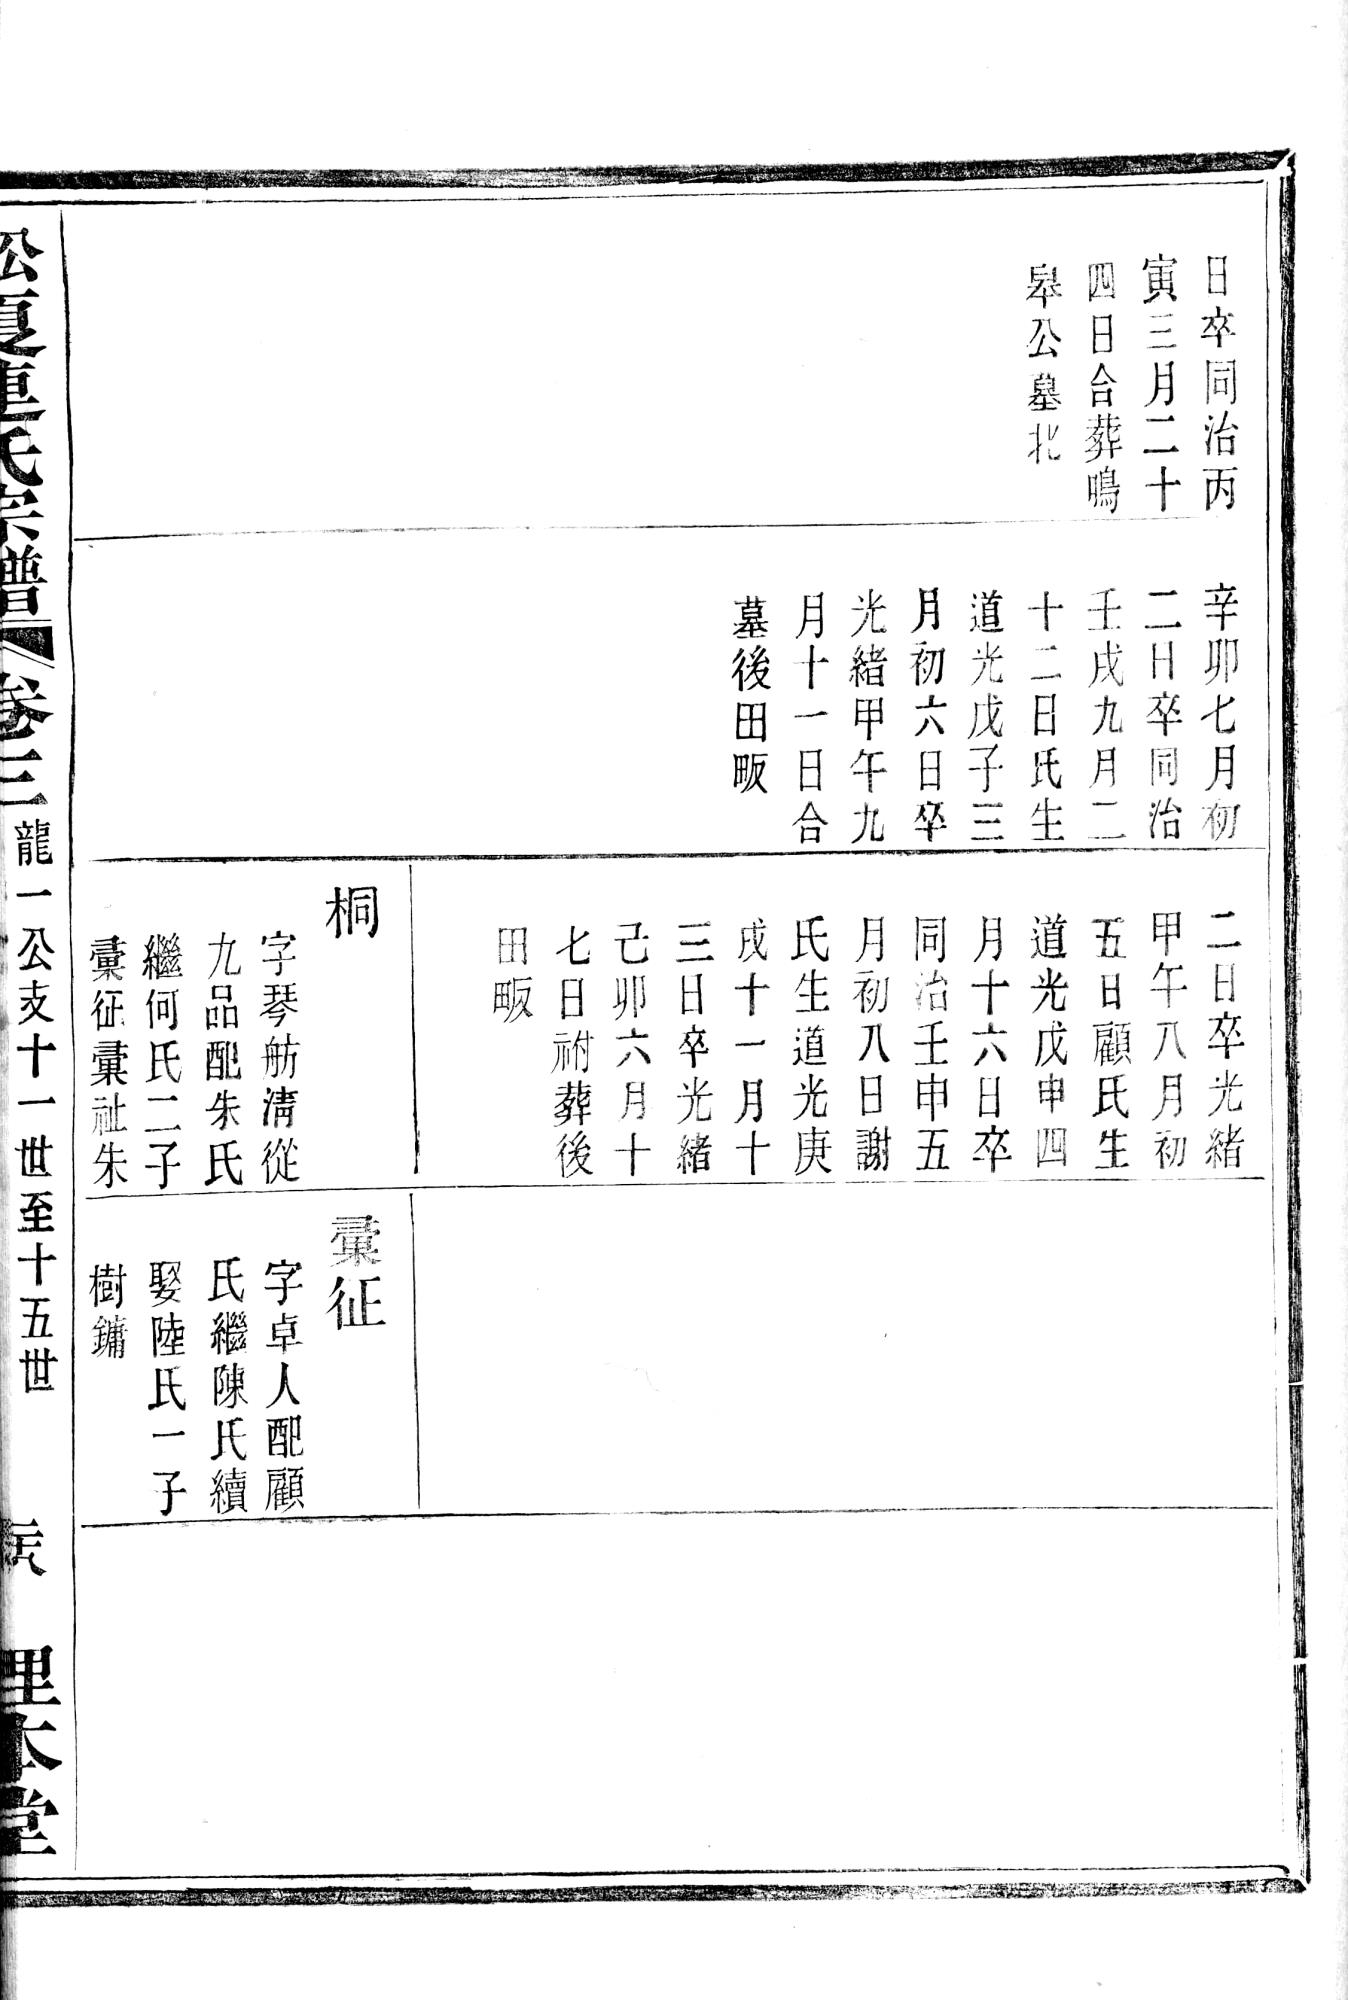 日卒同治丙
寅三月二十
四日合葬鳴
皋公墓北
辛卯七月初
二日卒同治
壬戌九月二
十二日氏生
道光戊子三
月初六日卒
光緒甲午九
月十一日合
墓後田畈
二日卒光緒
甲午八月初
五日顧氏生
道光戊申四
月十六日卒
同治壬申五
月初八日謝
氏生道光庚
戌十一月十
三日卒光緒
己卯六月十
七日祔葬後
田畈
桐
字琴舫清從
九品配朱氏
繼何氏二子
彙征彙祉朱
彙征
字卓人配顧
氏繼陳氏續
娶陸氏一子
樹鏞
松夏連氏宗譜 卷三 龍一公支十一世至十五世